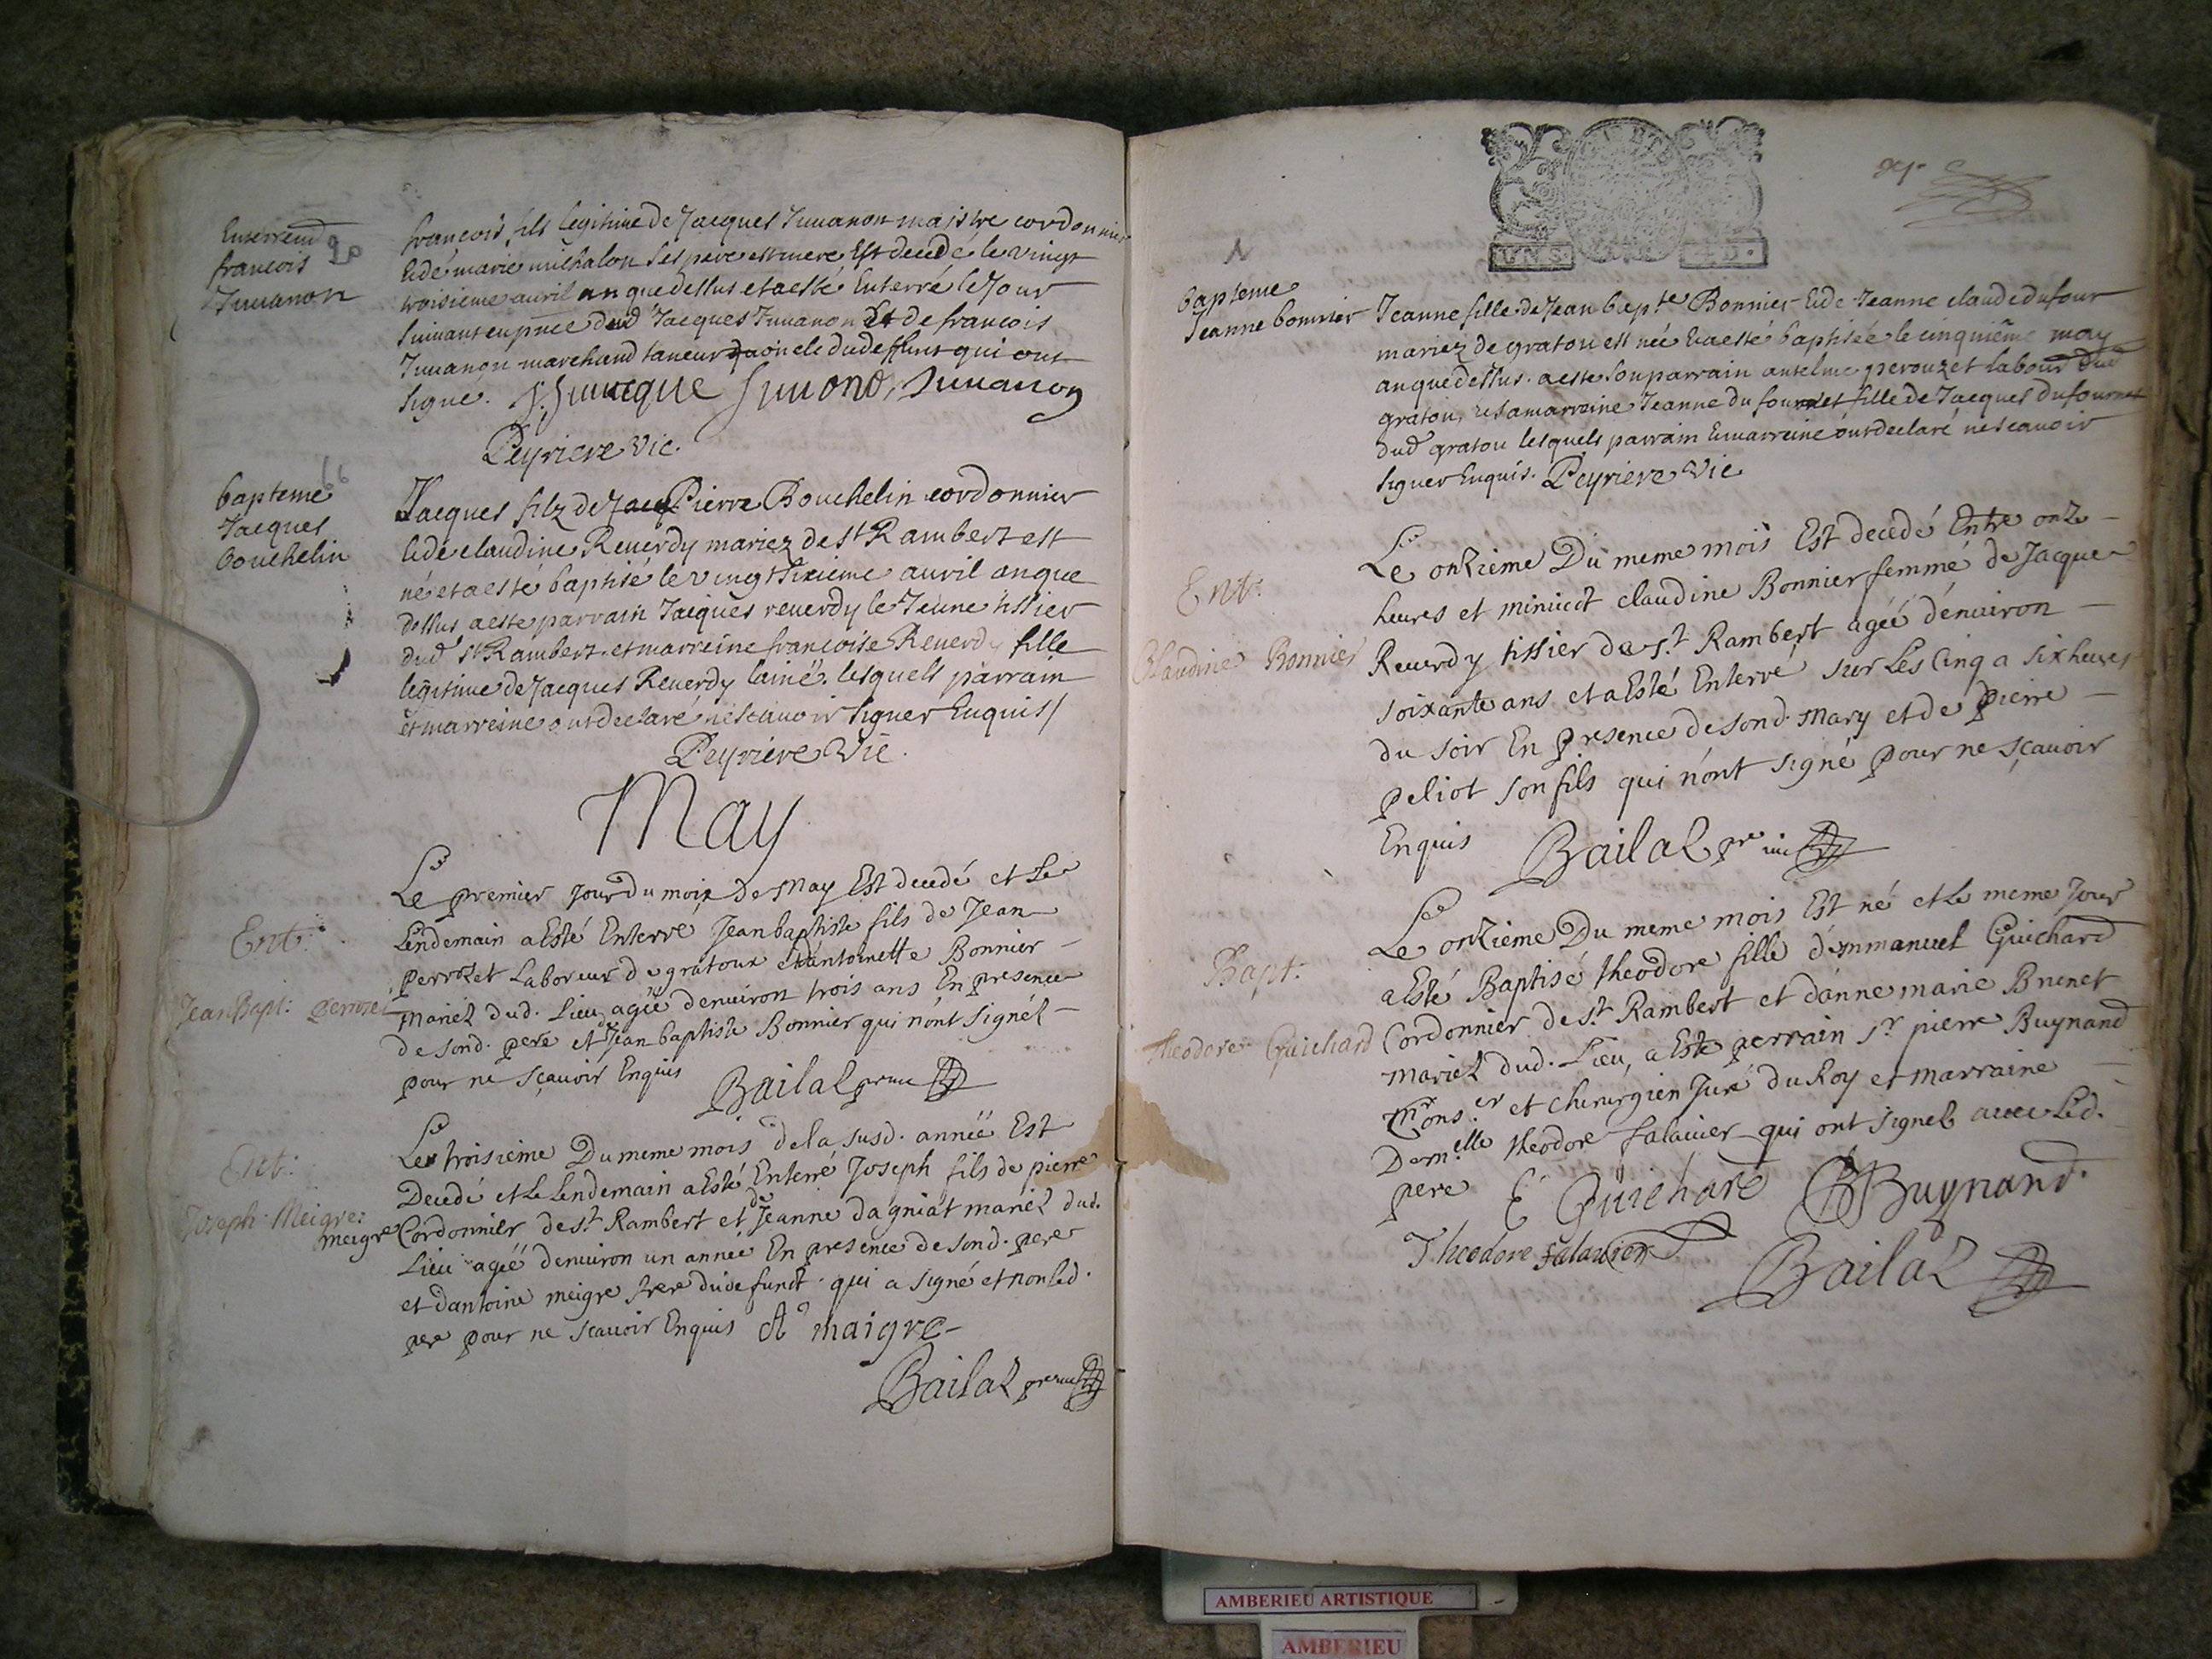 Enterremt
francois
Juuanon
francois fils legitime de Jacques Juuanon maistre cordonnier
et de marie michalon ses pere et mere Est decedé le vingt
troisieme auril an que dessus et a esté Enterré le Jour
suiuant en pnce dud Jacques Juuanon Et de francois
Juuanon marchand taneur oncle du deffunt qui ont
signé. Juuanon
Peyriere vic.
bapteme
Jacques
bouchelin
Jacques filz de Pierre Bouchelin cordonnier
et de claudine Reuerdy mariez de st Rambert est
né et a esté baptisé le vingt sixieme auril an que
dessus a esté parrain Jacques reuerdy le Jeune tissier
dud st Rambert et marreine francoise Reuerdy fille
legitime de Jacques Reuerdy lainé. lesquels parrain
et marreine ont declaré ne scauoir signer Enquis/
Peyriere vic.
May
Ent:
Jean Bapt: perrozet
Le premier Jour du moix De May Est decedé et Le
Lendemain a Esté Enterré Jean baptiste fils de Jean
perrozet Laboreur de gratoux et dantoinette Bonnier
Mariéz dud. Lieu agée denuiron trois ans En presence
de sond. pere et de Jean baptiste Bonnier qui nónt signéz
pour ne sçauoir Enquis Bailaz
Ent:
Joseph Meigre:
meigre
Le troisieme Du meme mois de la susd. année Est
Decedé et Le Lendemain a Esté Enterré Joseph fils de pierre
Cordonnier de st. Rambert et de Jeanne dagniat mariéz dud.
Lieu agéé denuiron un année En presence de sond. pere
et dantoine meigre frere du defunct qui a signé et non led.
pere pour ne scauoir Enquis A maigre
Bailaz
bapteme
Jeanne bonnier
Jeanne fille de Jean bapte Bonnier et de Jeanne claude dufour
mariez de gratou est née et a esté baptisée le cinquième may
an que dessus. a esté son parrain anselme perouzet labour dud
gratou, et sa marreine Jeanne du fournet fille de Jacques dufournet
dud gratou lesquels parrain et marreine ont declaré ne scauoir
signer Enquis. Peyriere vic
Ent:
Claudine Bonnier
Le onzieme Du meme mois Est decedé Entre onze
heures et minuict claudine Bonnier femme de Jacque
Reuerdy tissier de st. Rambert agéé dénuiron
soixante ans et a Esté Enterré sur Les Cinq a six heures
du soir En presence de sond. Mary et de pierre
peliot son fils qui nónt signé pour ne sçauoir
Enquis Bailaz
Bapt:
Theodore Guichard
Le onzieme Du meme mois Est né et Le meme Jour
a Esté Baptisé theodore fille démmanuel Guichard
Cordonnier de st. Rambert et dánne marie Brunet
Mariéz dud. Lieu, a Esté perrain sr pierre Buynand
et chirurgien Juré du Roy et marraine
Demelle theodore falauier qui ont signéz auec Led.
pere E Guichard Buynand.
Theodore falauier
Bailaz
AMBERIEU ARTISTIQUE
AMBERIEU